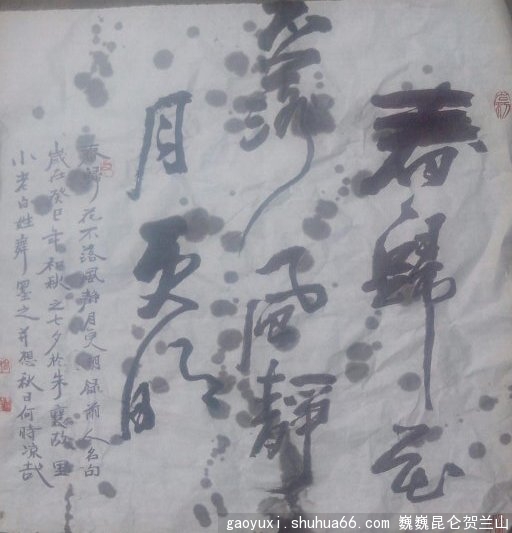 春歸花
不落風靜
月更明
春歸花不落風靜月更明録前人名句
歲在癸巳年初秋之七夕於朱襄故里
小老百姓墨之并想秋日何時凉哉
gaoyuxi.shuhua66.com 巍巍昆仑贺兰山